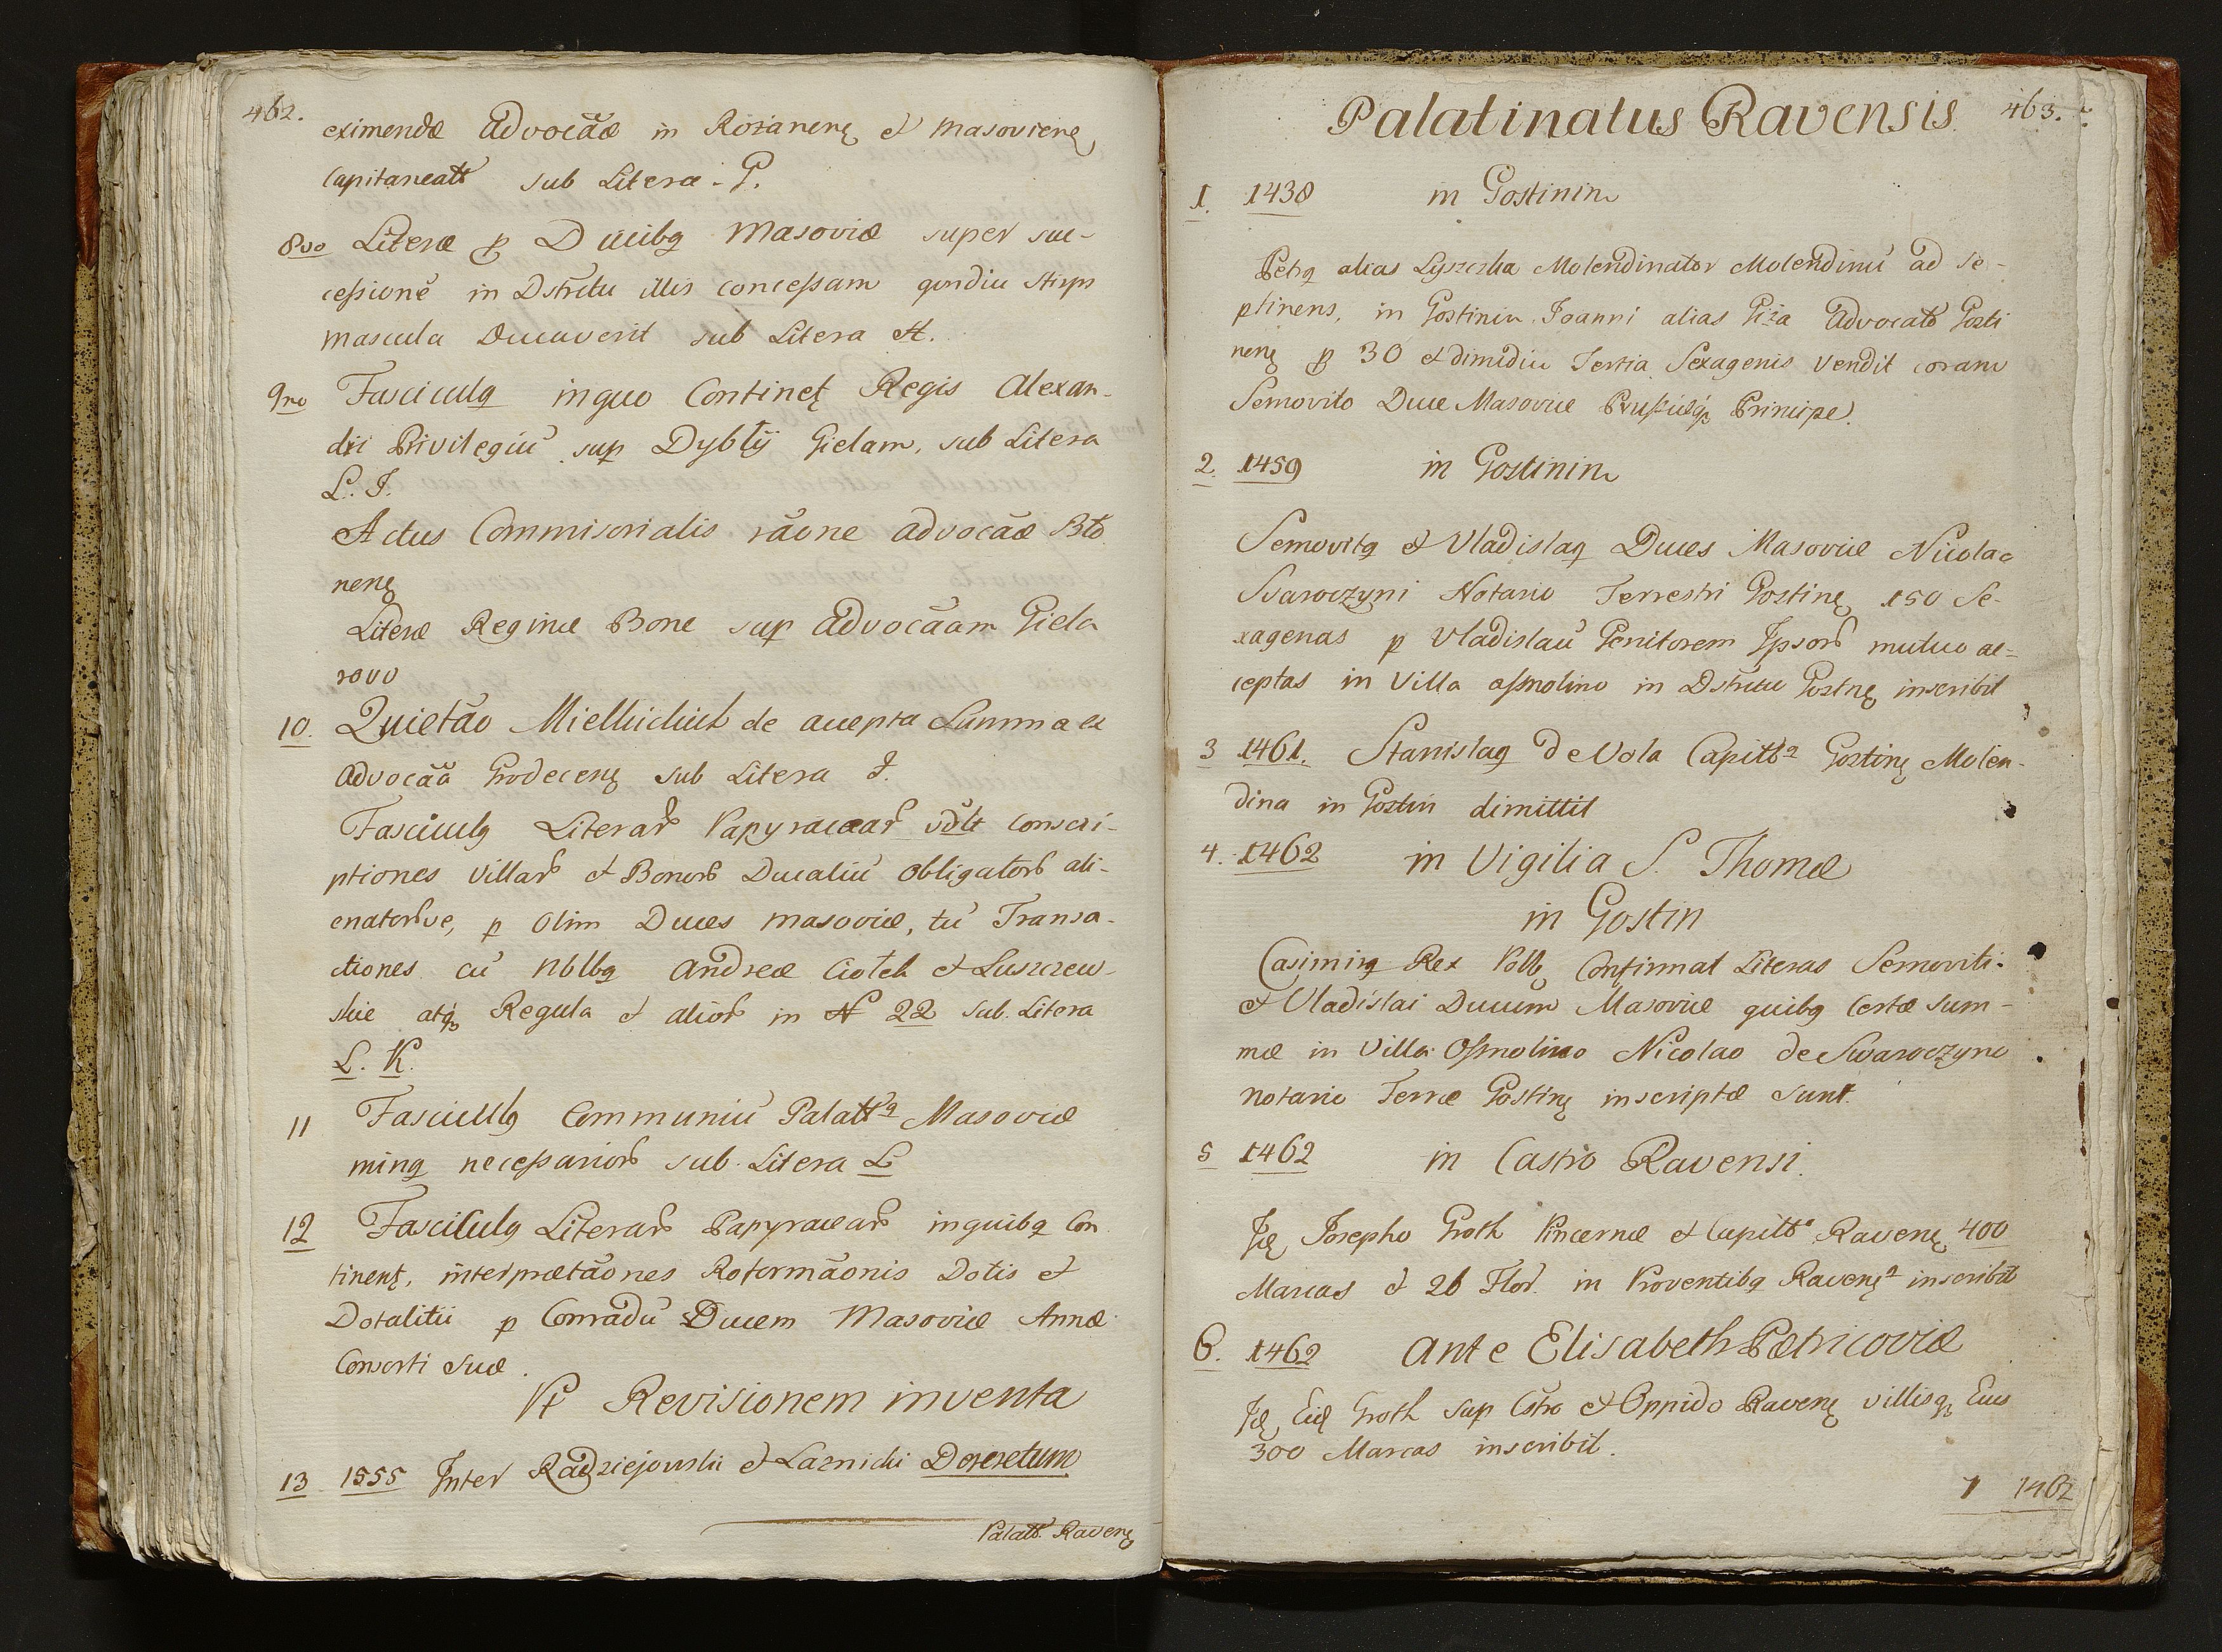 462.
eximendæ Advocãæ in Rożanenę et Masovienę
Capitaneatt sub Litera - G.
8vo Literæ p Ducibq Masoviæ super suc-
cessionẽ in Dstrctu illis concessam qundiu Stirps
mascula Ducaverit sub Litera H.
9no Fasciculq inquo Continet Regis Alexan-
dri Privilegiũ sup Dybtÿ Gielam, sub Litera
L. I.
Actus Commisorialis rãone Advocãæ Bło
nenę
Literæ Reginæ Bone sup Advocãam Giela
rovo
10. Quietão Mielhichich de accepta Summa ex
Advocãa Grodecenę sub Litera I.
Fasciculq Literar Papyracear vdlt conscri-
ptiones villar et Bonor Ducaliũ obligator ali-
enatorve, p olim Duces Masoviæ, tũ Transa-
ctiones cũ Nblbq Andreæ Ciołek et Luszczew-
skie atq Regula et alior in N 22 sub. Litera
L. K.
11 Fasciculq Communiũ Palatt Masoviæ
minq necessarior sub. Litera L
12 Fasciculq Literar Papyracear inquibq Con
tinent, interpretãones Reformãonis Dotis et
Dotalitii p Conradũ Ducem Masoviæ Annæ
Consorti Suæ.
Pt Revisionem inventa
13 1555 Inter Radziejowski et Laznicki Decretum
Palatt. Ravenę
Palatinatus Ravensis 463.
1. 1438 in Gostinin
Petrq alias Lyszczka Molendinator Molendinũ ad se-
ptinens, in Gostinin Joanni alias Giża Advocato Gosti
nenę p 30 et dimidiu Tertia Sexagenis vendit coram
Semovito Duce Masoviæ Russiæq Principe.
2. 1459 in Gostinin
Semovitq et Vladislaq Duces Masoviæ Nicolao
Swaroczyni Notario Terrestri Gostinę 150 Se-
xagenas p Vladislaũ Genitorem Ipsor mutuo ac-
ceptas in Villa Osmolino in Dstrctu Gostnę inscribit
3 1461. Stanislaq de Vola Capitt Gostinę Molen-
dina in Gostin dimittit
4. 1462 in Vigilia S. Thomæ
in Gostin
Casimirq Rex Poll Confirmat Literas Semoviti
et Vladislai Ducum Masoviæ quibq certæ sum-
mæ in Villa Osmolino Nicolao de Swaroczyno
Notario Terræ Gostinę inscriptæ sunt.
5 1462 in Castro Ravensi.
Idę Josepho Groth Pincernæ et Capitt Ravenę 400
Marcas et 26 Flor. in Proventibq Ravenę inscribit
6. 1462 Ante Elisabeth Petricoviæ
Idę Eidę Groth sup Cstro et Oppido Ravenę villisq Eius
300 Marcas inscribit.
7 1462